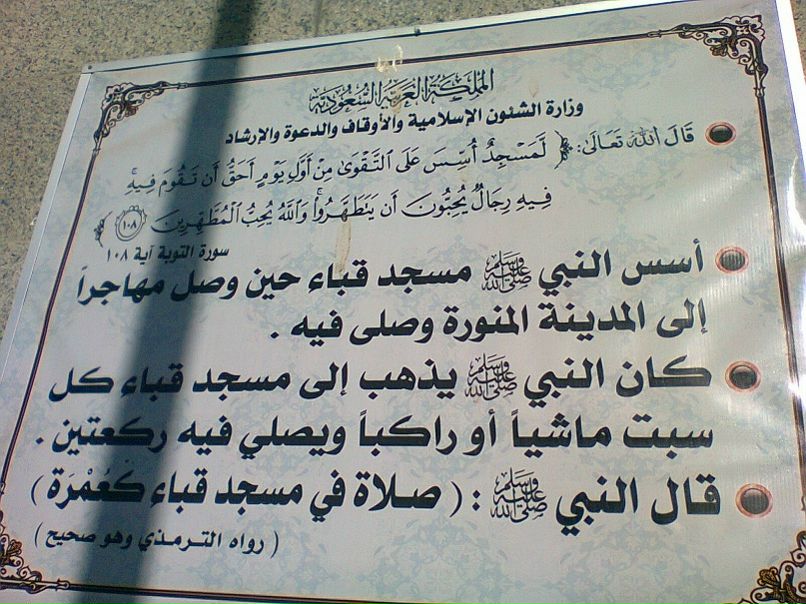 المملكة العربية السعودية
وزارة الشئون الإسلامية والأوقاف والدعوة والإرشاد
قَالَ اللهُ تَعَالَى: لَّمَسْجِدٌ أُسِّسَ عَلَى التَّقْوَىٰ مِنْ أَوَّلِ يَوْمٍ أَحَقُّ أَن تَقُومَ فِيهِ ۚ
فِيهِ رِجَالٌ يُحِبُّونَ أَن يَتَطَهَّرُوا ۚ وَاللَّهُ يُحِبُّ الْمُطَّهِّرِينَ ١٠٨
سورة التوبة آية ١٠٨
أسس النبي ﷺ مسجد قباء حين وصل مهاجراً
إلى المدينة المنورة وصلى فيه .
كان النبي ﷺ يذهب إلى مسجد قباء كل
سبت ماشياً أو راكباً ويصلي فيه ركعتين .
قال النبي ﷺ : ( صلاة في مسجد قباء كَعُمْرَة )
( رواه الترمذي وهو صحيح )